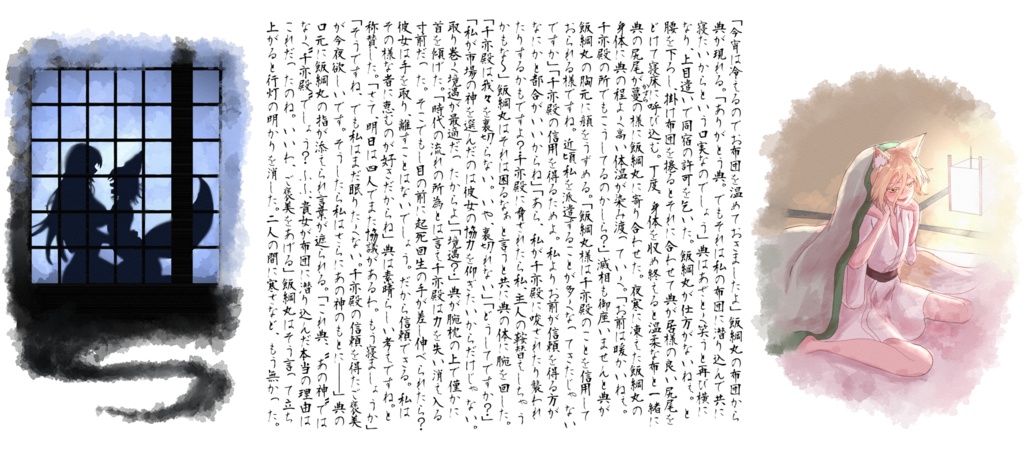 「今宵は冷えるのでお布団を温めておきましたよ」飯綱丸の布団から
典が現れる。「ありがとう典。でもそれは私の布団に潜り込んで共に
寝たいからという口実なのでしょう」典はあはっと笑うと再び横に
なり、上目遣いで同宿の許可を乞うた。飯綱丸が仕方がないねぇ。と
腰を下ろし掛け布団を捲るとそれに合わせて典が居様の良い尻尾を
どけて寝床へ呼び込む。丁度、身体を収め終えると温柔な布と一緒に
典の尻尾が蔓の様に飯綱丸に寄り合わせた。夜寒に凍てた飯綱丸の
身体に典の程よく高い体温が染み渡っていく。「お前は暖かいねぇ。
千亦殿の所でもこうしてるのかしら？」滅相も御座いませんと典が
飯綱丸の胸元に顔をうずめる。「飯綱丸様は千亦殿のことを信用して
おられる様ですね。近頃私を派遣することが多くなってきたじゃない
ですか」「千亦殿の信用を得るためよ。私よりお前が信頼を得る方が
なにかと都合がいいからね」「あら、私が千亦殿に唆されたり襲われ
たりするかもですよ？千亦殿に脅されたら私、主人の鞍替えしちゃう
かもなぁ〜」飯綱丸はそれは困るなぁ、と言うと共に典の体に腕を回した。
「千亦殿は我々を裏切らない。いや裏切れない」「どうしてですか？」
「私が市場の神を選んだのは彼女の協力を仰ぎたいからだけじゃない。
取り巻く境遇が最適だったからよ」「境遇？」典が腕枕の上で僅かに
首を傾げた。「時代の流れの所為とは言え千亦殿は力を失い消え入る
寸前だった。そこでもし目の前に起死回生の一手が差し伸べられたら？
彼女は手を取り、離すことはないでしょう。だから信頼できる。私は
その様な者に恵むのが好きだからね」典は素晴らしい考えですね。と
称賛した。「さて、明日は四人でまた協議があるわ。もう寝ましょうか」
「そうですね、でも私はまだ眠りたくない。千亦殿の信頼を得たご褒美
が今夜欲しいです。そうしたら私はさらにあの神のもとに――」典の
口元に飯綱丸の指が添えられ言葉が遮られる。「これ典、〝あの神〟では
なく〝千亦殿〟でしょう？ふふ、貴女が布団に潜り込んだ本当の理由は
これだったのね。いいわ、ご褒美をあげる」飯綱丸はそう言って立ち
上がると行灯の明かりを消した。二人の間に寒さなど、もう無かった。